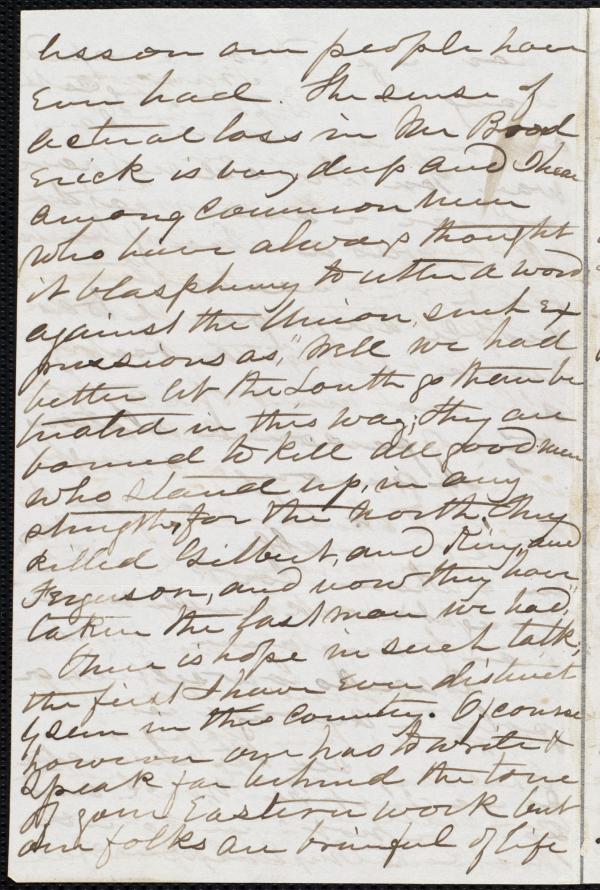 lesson our people have
ever had. The sense of
actual loss in Mr Brod
erick is very deep and I hear
among common men
who have always thought
it blasphemy to utter a word
against the Union, such ex
pressions as, "Well we had
better let the South go than be
treated in this way; they are
bound to kill all good men
who stand up, in any
strength, for the North. They
killed Gilbert, and King, and
Ferguson, and now they have
taken the last man we had,"
There is hope in such talk,
the first I have ever distinct
ly seen in this country. Of course
however one has to write &
speak far behind the tone
of your Eastern work but
our folks are brimful of life